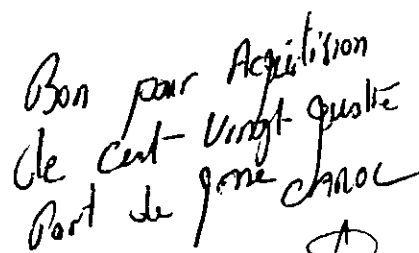 Bon pour Acquitision
de cent Vingt quatre
Part de Mme CAROL